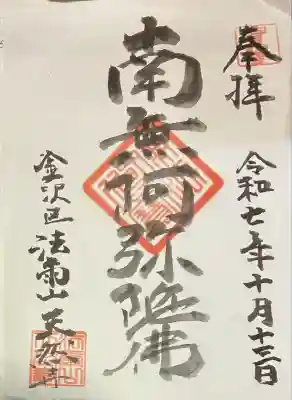 奉拝
令和七年十月十三日
南無阿弥陀佛
金沢区 法雨山 天然寺